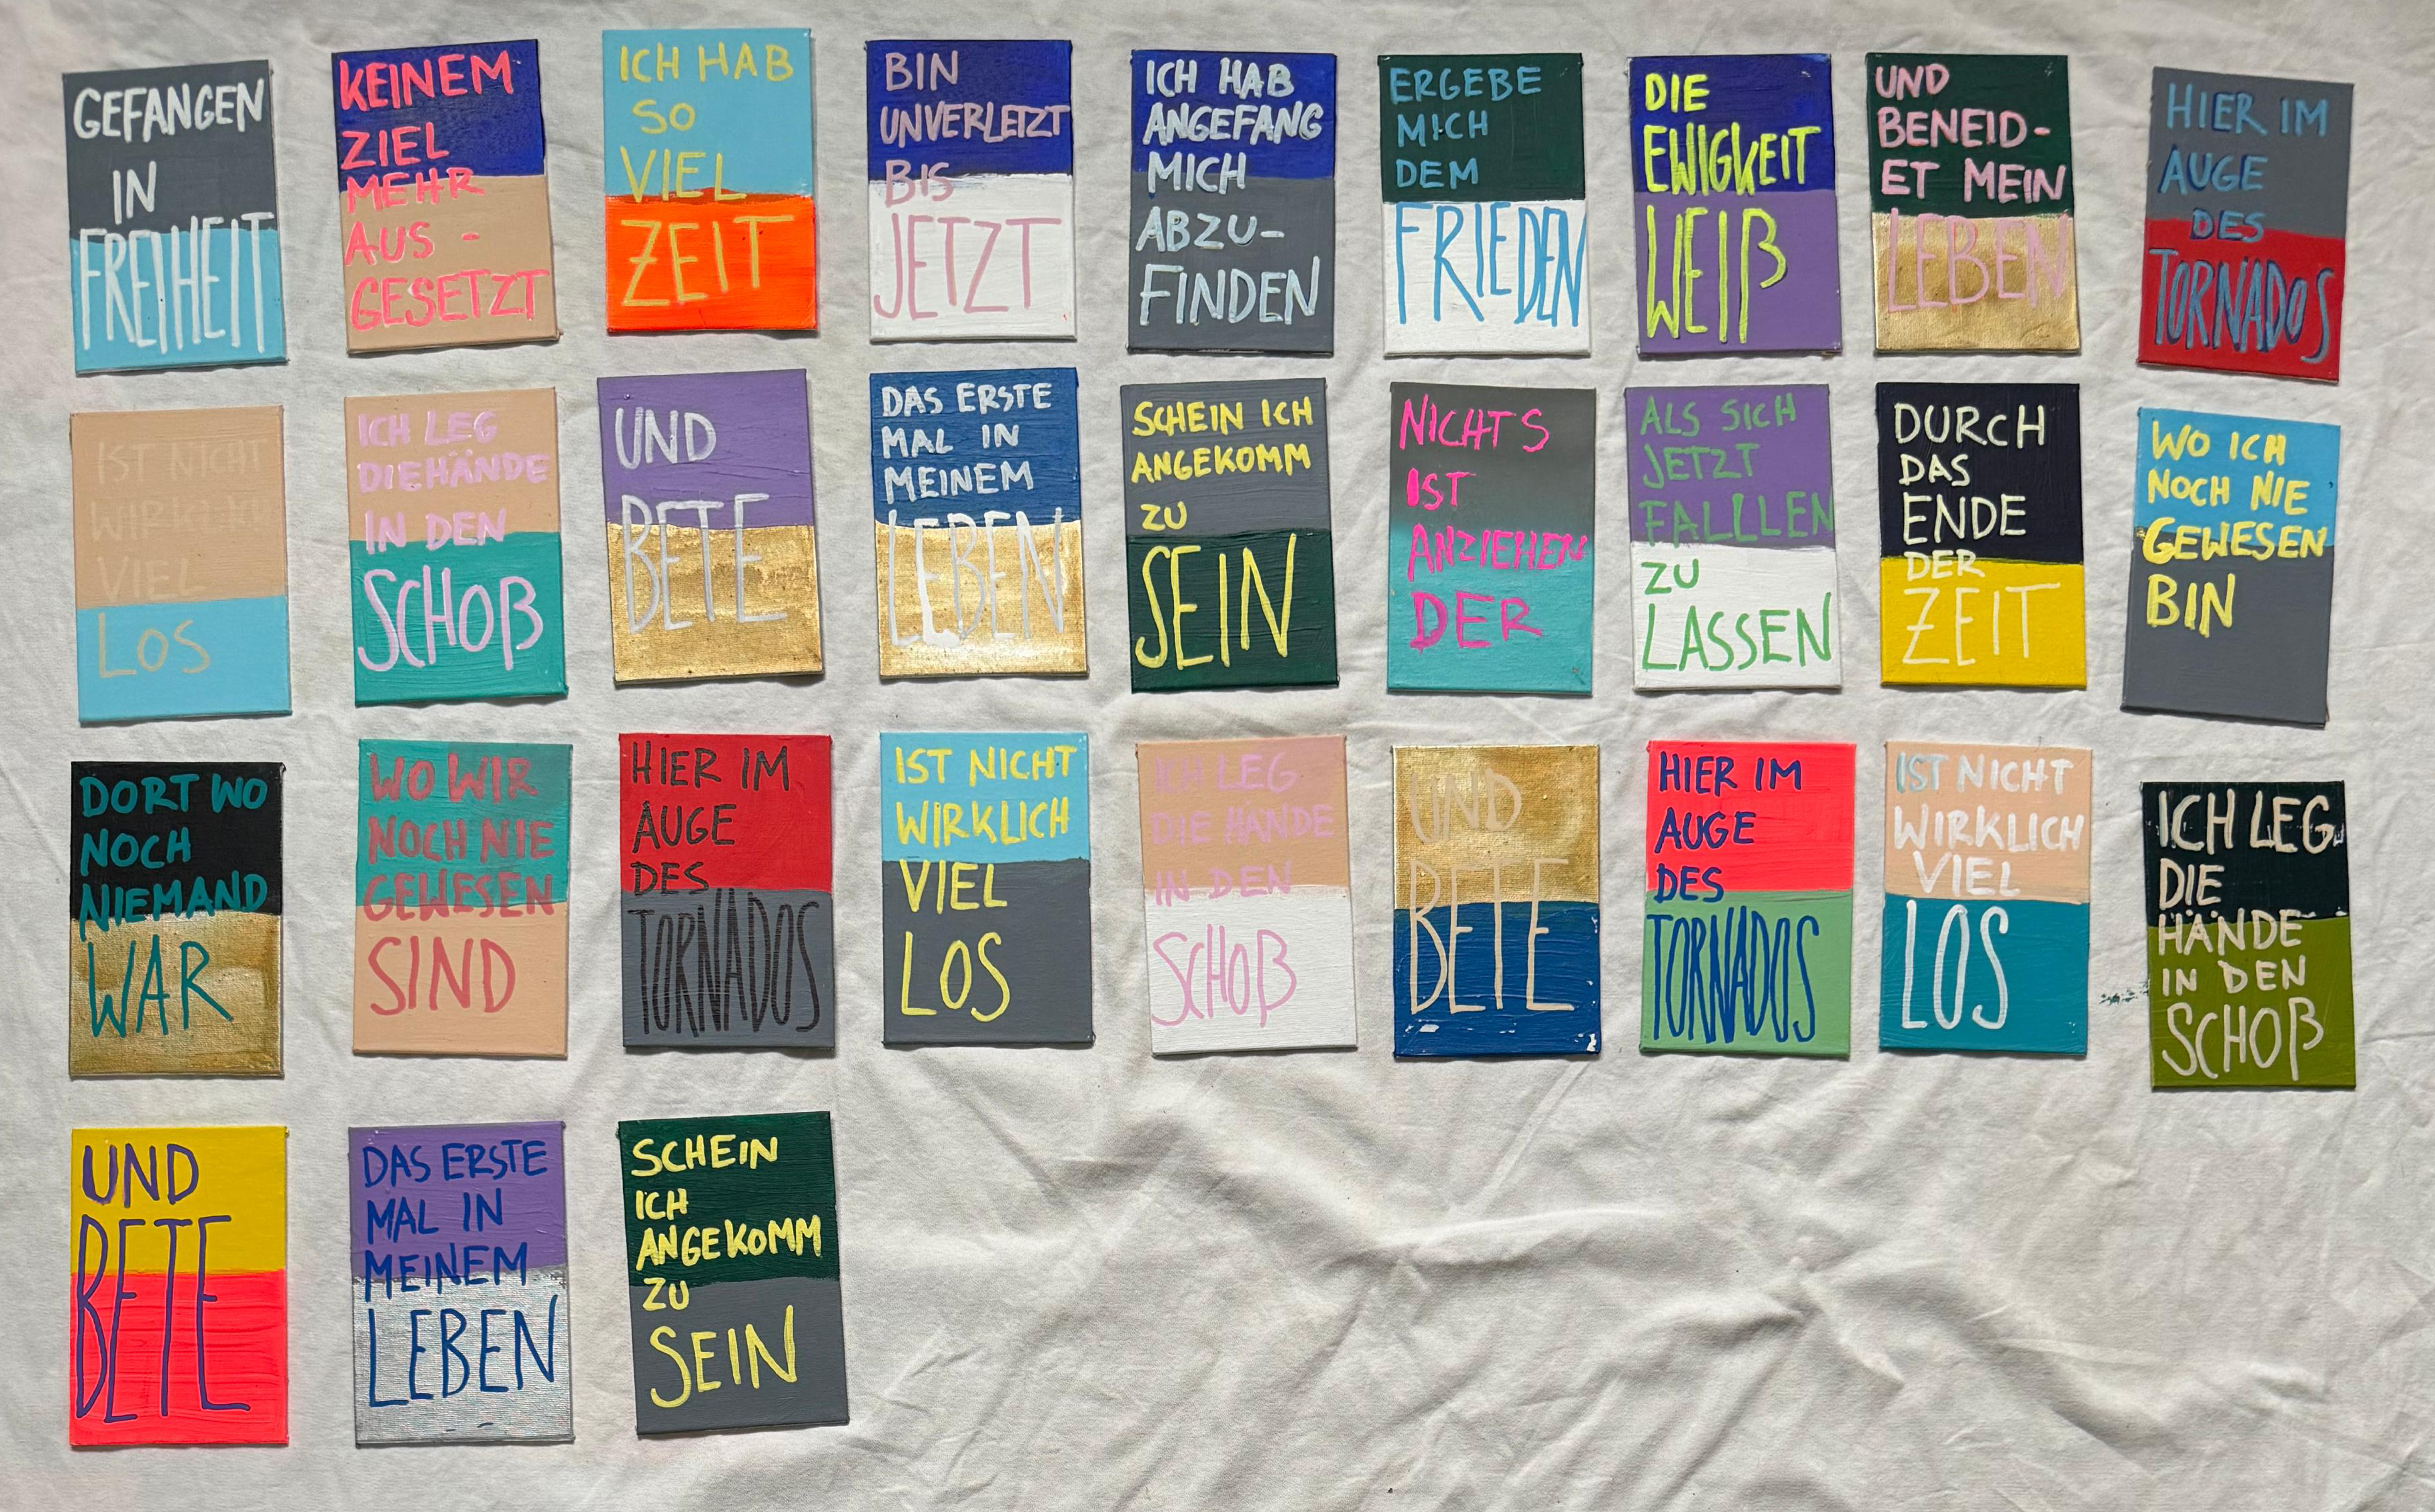 GEFANGEN
IN
FREIHEIT
KEINEM
ZIEL
MEHR
AUS-
GESETZT
ICH HAB
SO
VIEL
ZEIT
BIN
UNVERLETZT
BIS
JETZT
ICH HAB
ANGEFANG
MICH
ABZU-
FINDEN
ERGEBE
MICH
DEM
FRIEDEN
DIE
EWIGKEIT
WEIß
UND
BENEID-
ET MEIN
LEBEN
HIER IM
AUGE
DES
TORNADOS
IST NICHT
WIRKLICH
VIEL
LOS
ICH LEG
DIE HÄNDE
IN DEN
SCHOß
UND
BETE
DAS ERSTE
MAL IN
MEINEM
LEBEN
SCHEIN ICH
ANGEKOMM
ZU
SEIN
NICHTS
IST
ANZIEHEN
DER
ALS SICH
JETZT
FALLLEN
ZU
LASSEN
DURCH
DAS
ENDE
DER
ZEIT
WO ICH
NOCH NIE
GEWESEN
BIN
DORT WO
NOCH
NIEMAND
WAR
WO WIR
NOCH NIE
GEWESEN
SIND
HIER IM
AUGE
DES
TORNADOS
IST NICHT
WIRKLICH
VIEL
LOS
ICH LEG
DIE HÄNDE
IN DEN
SCHOß
UND
BETE
HIER IM
AUGE
DES
TORNADOS
IST NICHT
WIRKLICH
VIEL
LOS
ICH LEG
DIE
HÄNDE
IN DEN
SCHOß
UND
BETE
DAS ERSTE
MAL IN
MEINEM
LEBEN
SCHEIN
ICH
ANGEKOMM
ZU
SEIN